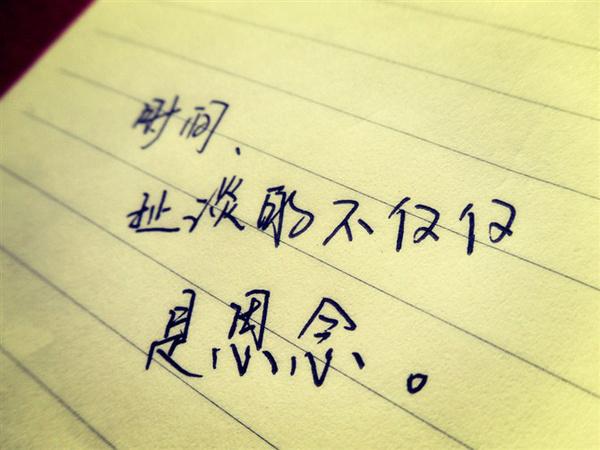 时间、
扯淡的不仅仅
是思念。